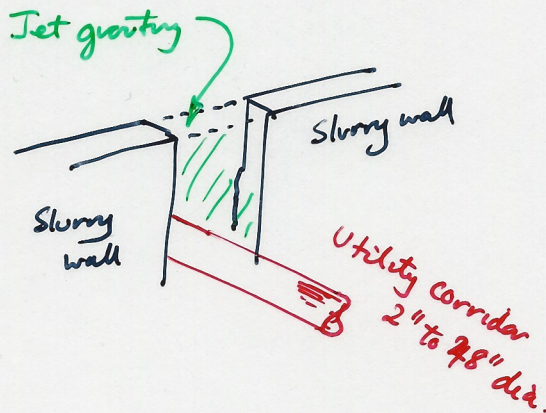 Jet grouting
Slurry wall
Slurry
wall
Utility corridor
2" to 48" dia.